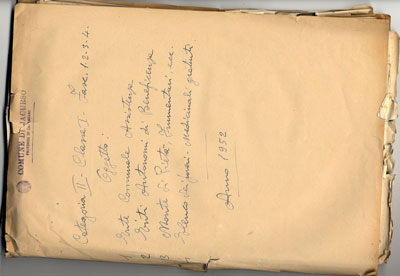 COMUNE DI JACURSO
Categoria II - Classe I - Fasc. 1.2.3.4.
Oggetto:
1 Ente Comunale Assistenza
2 Enti Autonomi di Beneficenza
3 Monte di Pietà, Frumentari, ecc.
Elenco dei poveri - Medicinali gratuiti.
Anno 1952